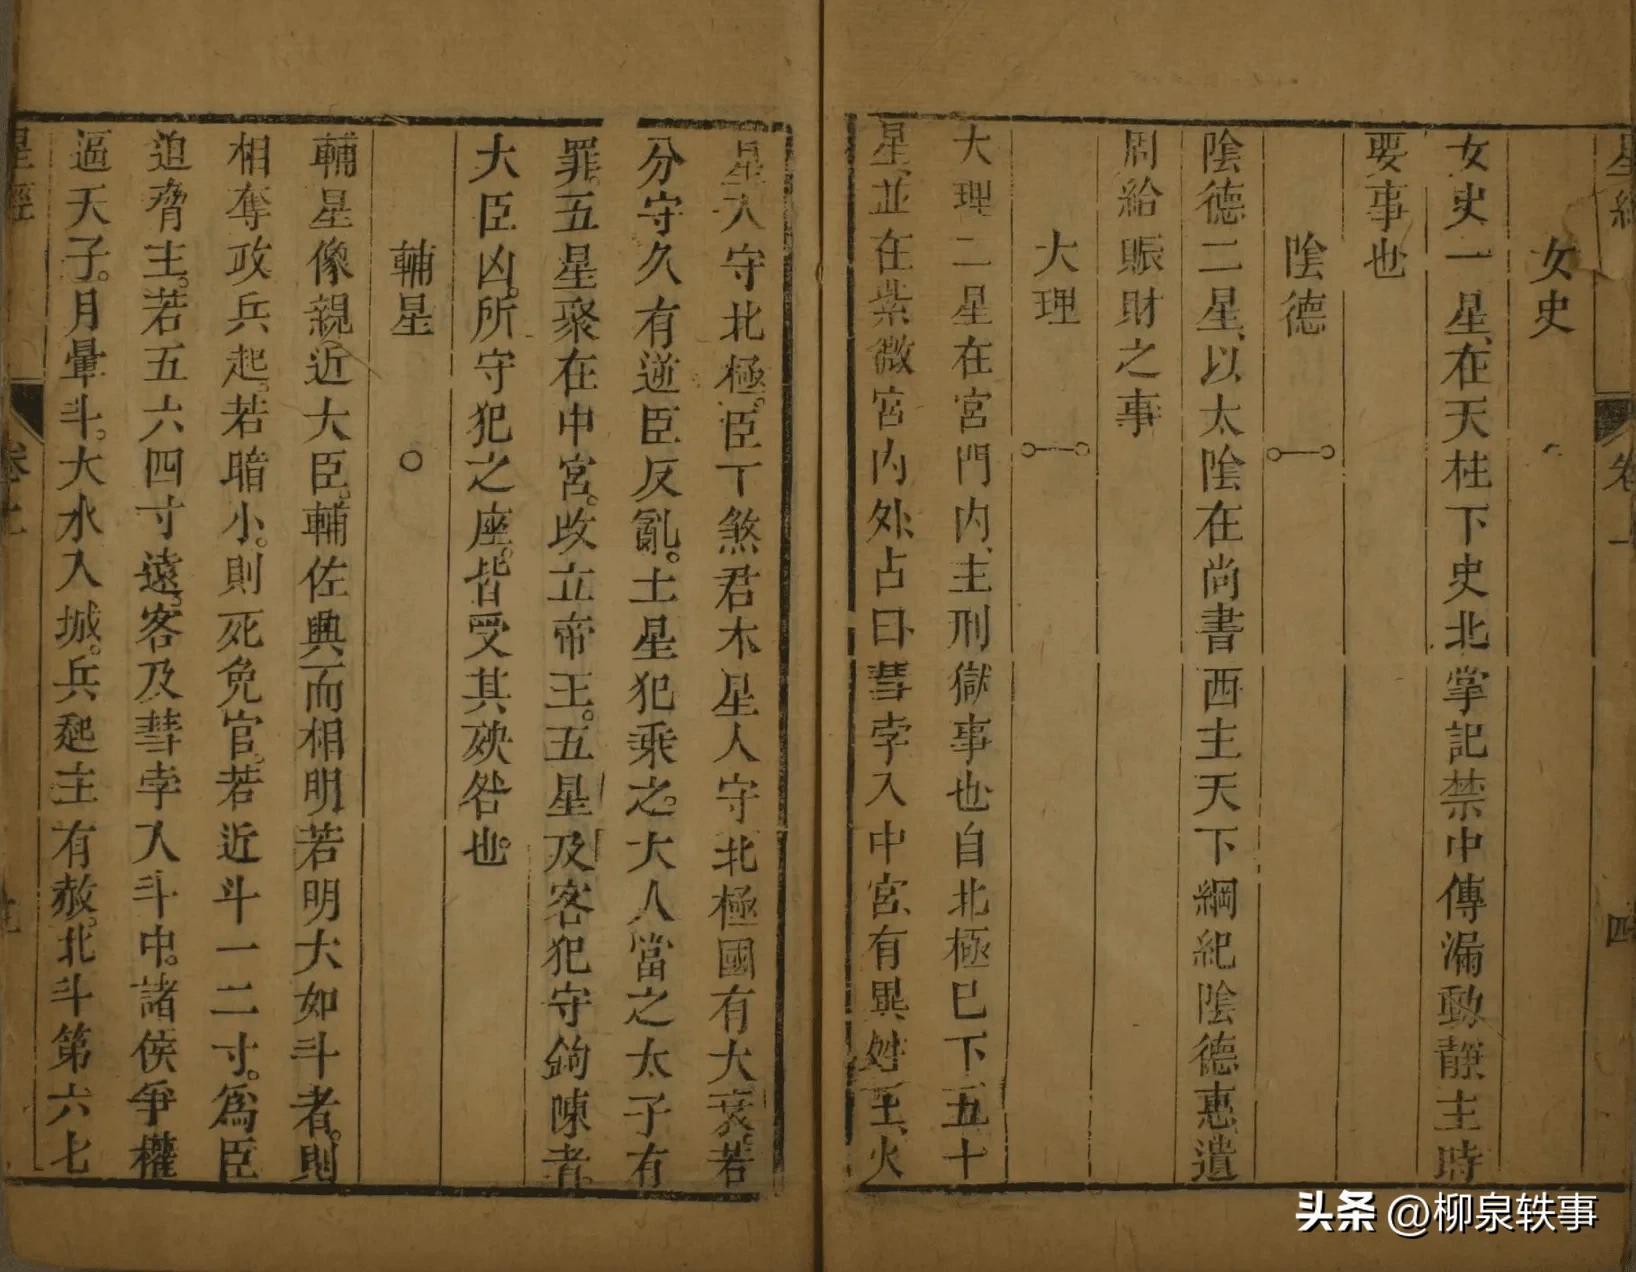 女史
女史一星、在天柱下史北掌記禁中傳漏動靜主時
要事也
陰德
陰德二星、以太陰在尚書西主天下綱紀陰德惠遺
周給賑財之事
大理
大理二星在宮門內、主刑獄事也自北極巳下五十
星、並在紫微宮內外占曰彗孛入中宮、有異姓王、火
星入守北極。臣下煞君木星入守北極國有大衰。若
分守久有逆臣反亂。土星犯乘之。大人當之太子有
罪。五星聚在中宮。改立帝王。五星及客犯守鉤陳者。
大臣凶。所守犯之座。皆受其殃咎也。
輔星
輔星像親近大臣。輔佐興而相明若明大如斗者。則
相奪政兵起。若暗小。則死免官。若近斗一二寸。為臣
迫脅主。若五六四寸遠。客及彗孛入斗中。諸侯爭權
逼天子。月暈斗。大水入城。兵起主有赦。北斗第六七
星經
卷
四
头条 @柳泉轶事